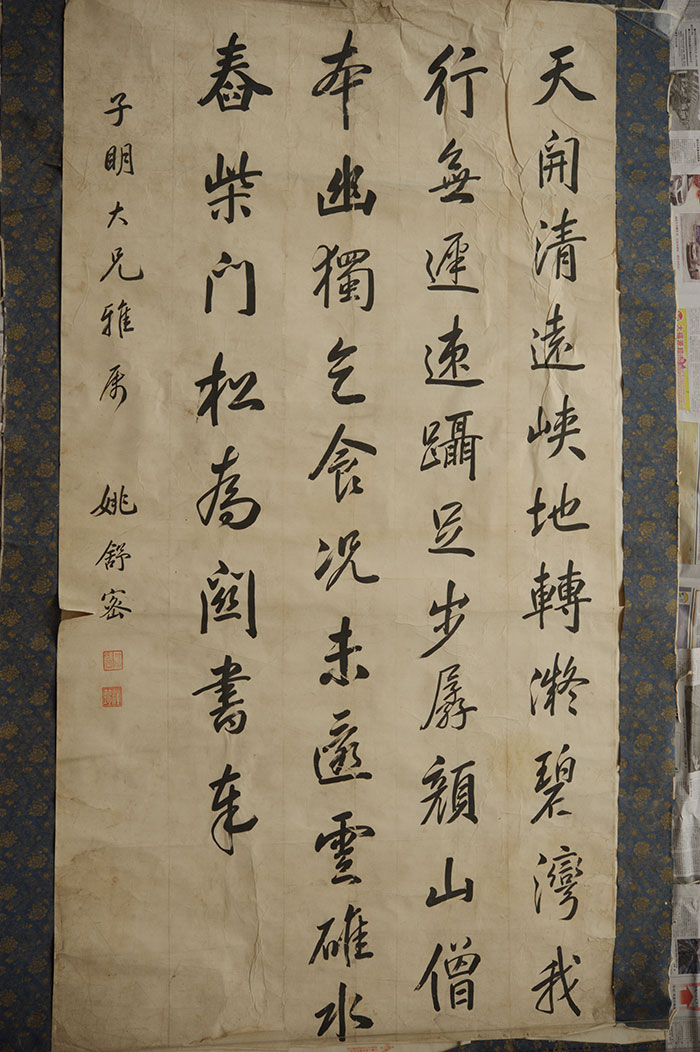 天開清遠峽地轉凝碧灣我
行無遲速躡足步孱顏山僧
本幽獨乞食況未還雲碓水
舂柴門松為關書奉
子明大兄雅属
姚舒密